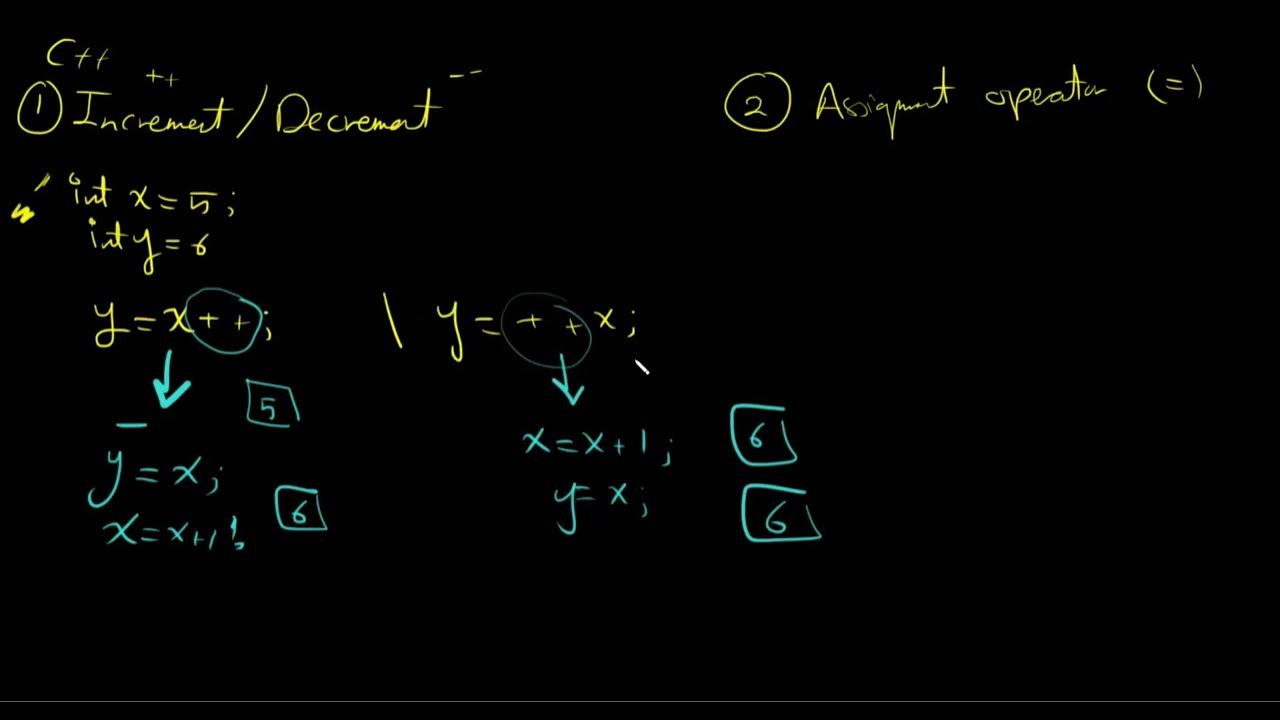 C++
++
--
① Increment / Decrement
② Assignment operator (=)
int x = 5;
int y = 6
y = x++; \ y = ++x;
5
y = x;
6
x = x+1;
x = x+1; 6
y = x; 6